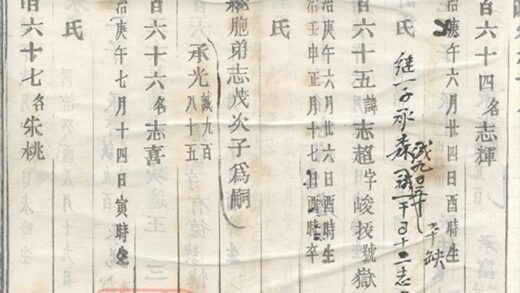 百六十四名志輝
治庚午六月廿四日酉時生
氏
继子承森
百六十五諱志超字峻拔號獄
治庚午六月廿六日酉時生
治壬申正月十七日酉時卒
氏
繼胞弟志茂次子爲嗣
承光誠九百八十五
百六十六名志喜
治庚午七月十四日寅時生
朱氏
百六十七名朱桃